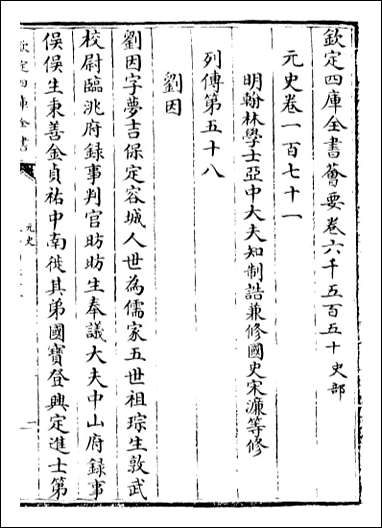 欽定四庫全書薈要卷六千五百五十 史部
元史卷一百七十一
明翰林學士亞中大夫知制誥兼修國史宋濂等修
列傳第五十八
劉因
劉因字夢吉保定容城人世為儒家五世祖琮生敦武
校尉臨洮府録事判官昉昉生奉議大夫中山府録事
俁俁生秉善金貞祐中南徙其弟國寶登興定進士第
欽定四庫全書
元史
一